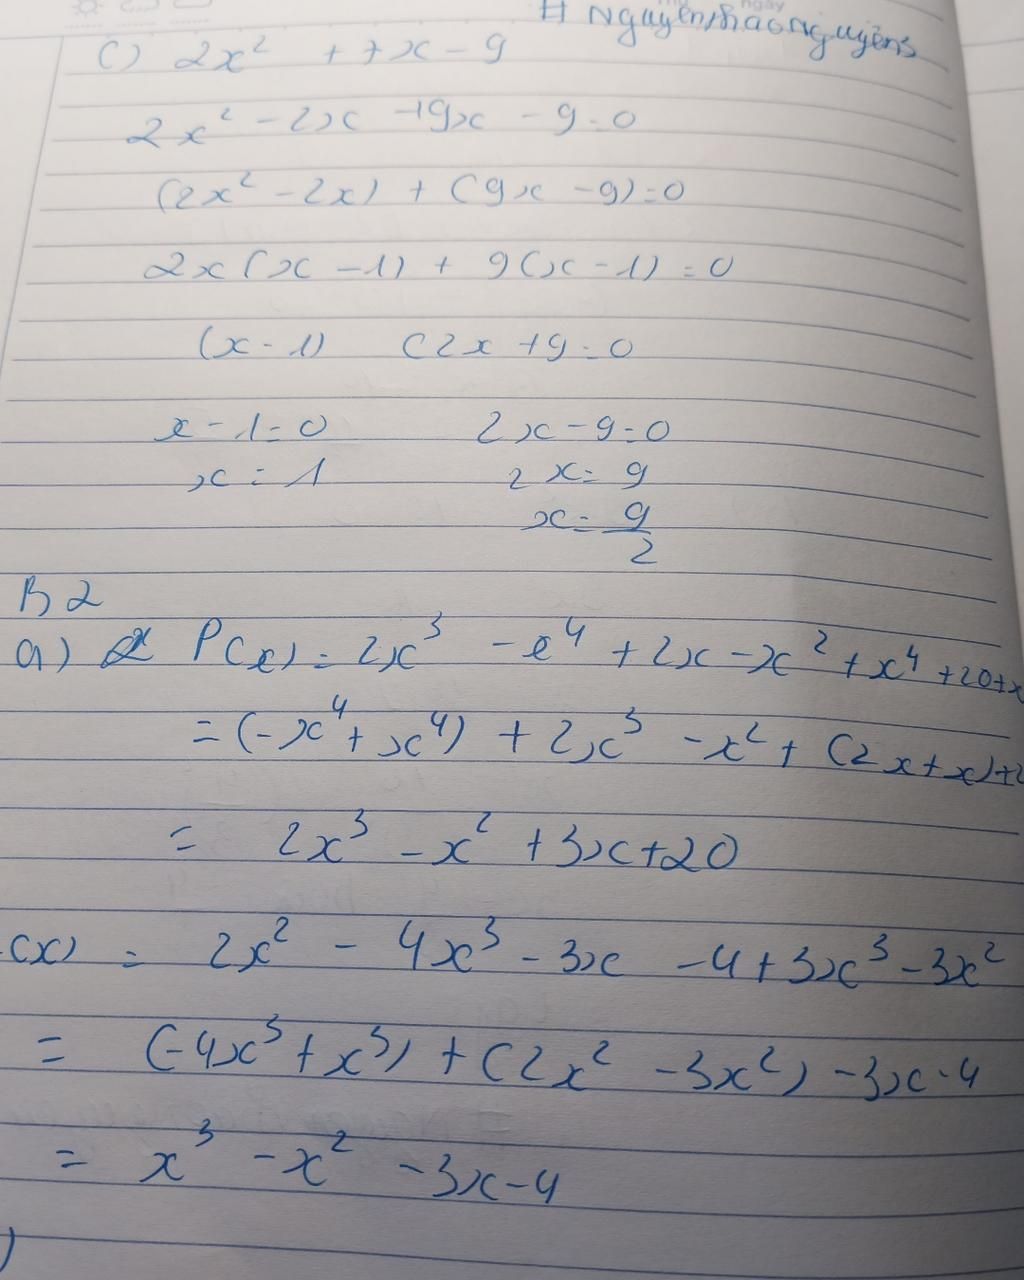 # NguyênthaoNguyên
c) 2x² + 7x - 9
2x² - 2x + 9x - 9 = 0
(2x² - 2x) + (9x - 9) = 0
2x(x - 1) + 9(x - 1) = 0
(x - 1) (2x + 9 = 0
x - 1 = 0 2x - 9 = 0
x = 1 2x = 9
x = 9/2
B2
a) P(x) = 2x³ - x⁴ + 2x - x² + x⁴ + 20 + x
= (-x⁴ + x⁴) + 2x³ - x² + (2x + x) + 2
= 2x³ - x² + 3x + 20
(x) = 2x² - 4x³ - 3x - 4 + 3x³ - 3x²
= (-4x³ + x³) + (2x² - 3x²) - 3x - 4
= x³ - x² - 3x - 4
)